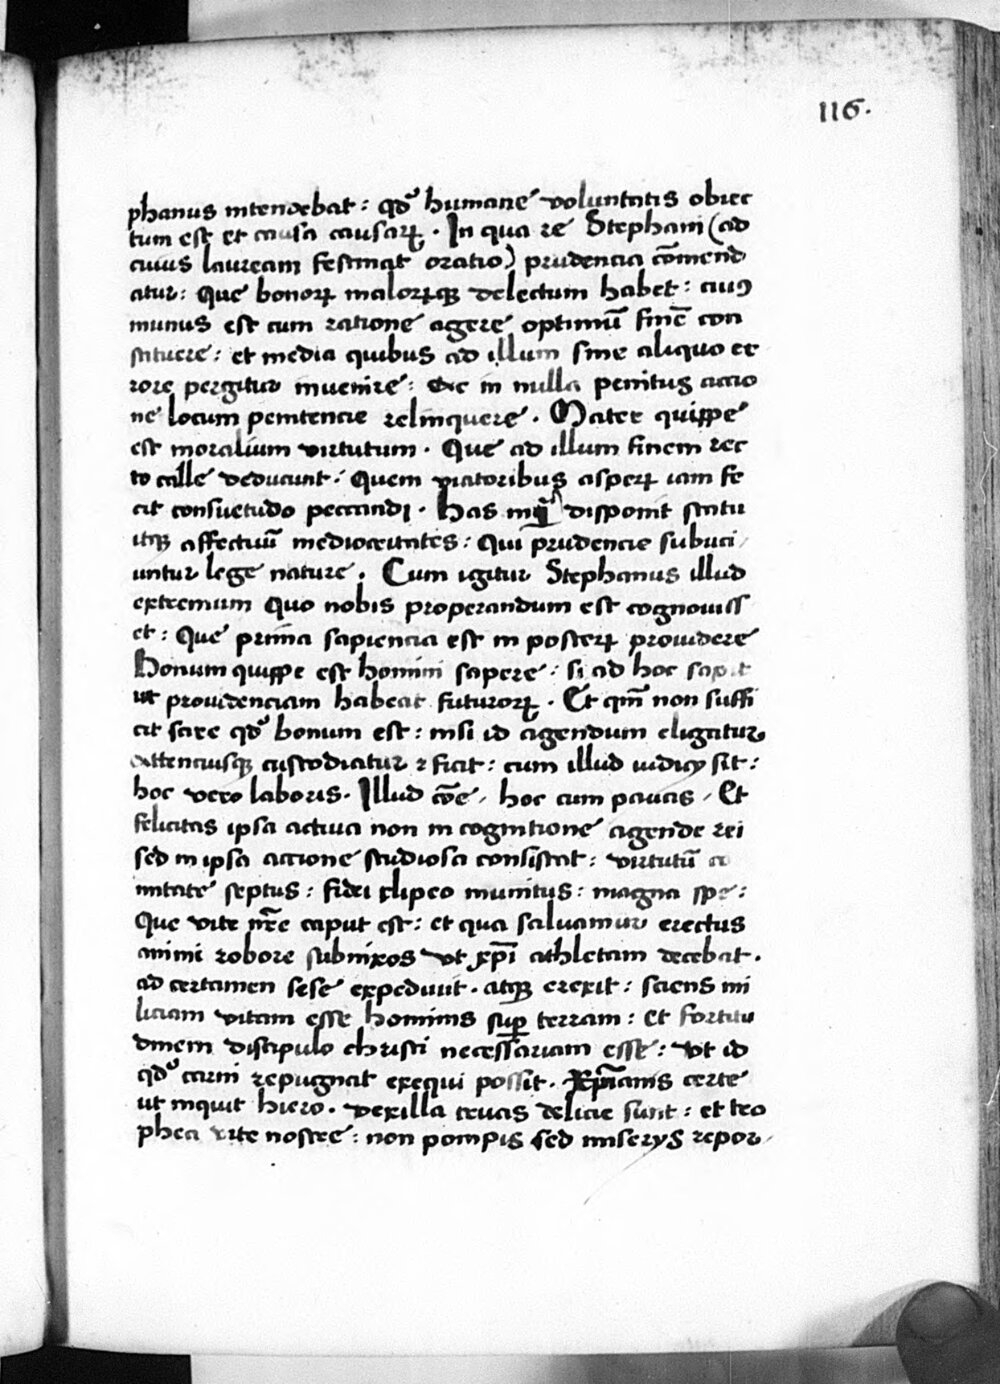 116.
phanus intendebat : qđ humane voluntatis obiec
tum est et causa causaꝝ . In qua re Stephani (ad
cuius lauream festinat oratio) prudencia cōmend
atur : Que bonoꝝ maloꝝqꝫ delectum habet : cuiꝰ
munus est cum ratione agere optimū finē con
stituere : et media quibus ad illum sine aliquo er
rore pergitur invenire : in nulla penitus actio
ne locum penitencie relinquere . Mater quippe
est moralium virtutum . Que ad illum finem rec
to calle deducunt . Quem viatoribus asperꝝ iam fe
cit consuetudo peccandi . Has disponit statu
itqꝫ affectuū mediocritates : Qui prudencie subici
untur lege nature . Cum igitur Stephanus illud
extremum quo nobis properandum est cognoviss
et : Que prima sapiencia est in posterꝝ providere
Bonum quippe est homini sapere : si ad hoc sapit
ut providenciam habeat futuroꝝ . Et qm̄ non suffi
cit scire qđ bonum est : nisi id agendum eligatur
attenciusqꝫ custodiatur ⁊ fiat : cum illud iudicij sit :
hoc vero laboris . Illud cōe , hoc cum paucis , Et
felicitas ipsa activa non in cognitione agende rei
sed in ipsa actione studiosa consistat : virtutū
nitate septus : fidei clipeo munitus : magna spe :
Que vite nr̄e caput est : et qua salvamur erectus
animi robore subnixos vt xp̄i athletam decebat .
ad certamen sese expedivit . atqꝫ erexit : sciens mi
liciam vitam esse hominis suꝑ terram : Et fortitu
dinem discipulo christi necessariam esse : vt id
qđ carni repugnat exequi possit . Xp̄ianis certe
ut inquit hiero . vexilla crucis delicie sunt : et tro
phea vite nostre : non pompis sed miserijs repor